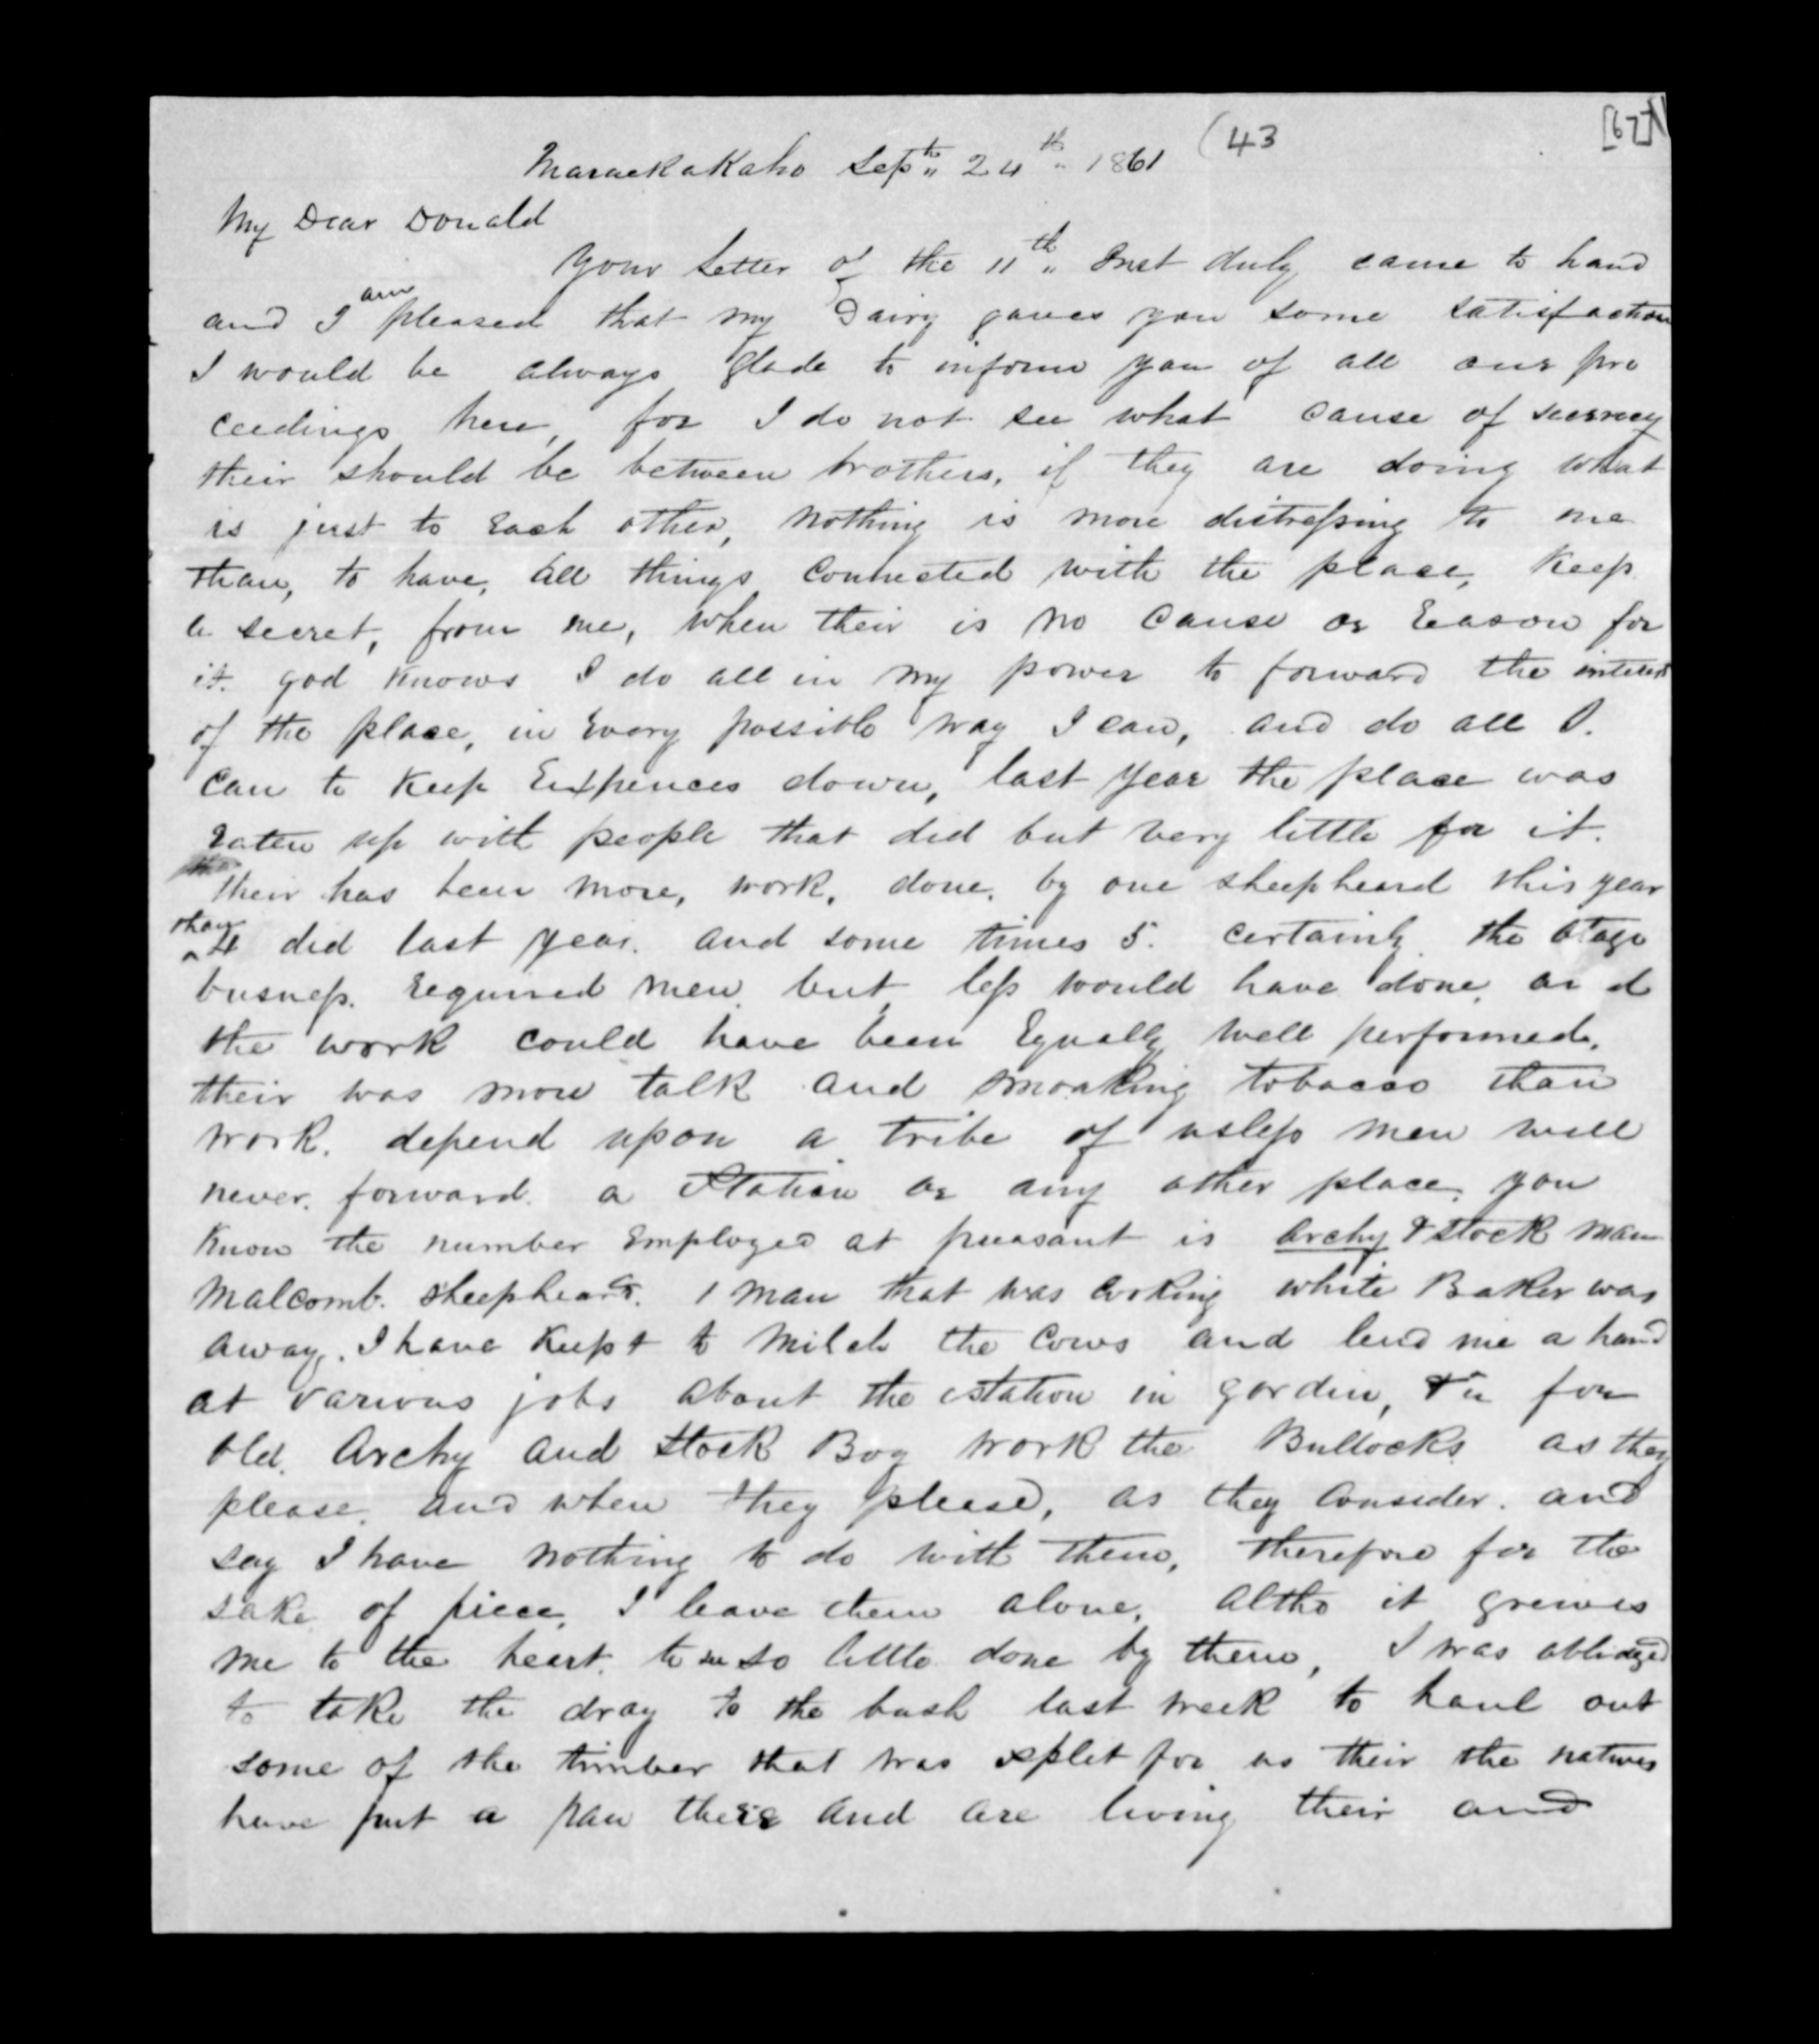 (43
[67]
Maraekakaho Septr 24th 1861
My Dear Donald
Your Letter of the 11th Inst duly came to hand
and I am pleased that my Dairy gaves you some satisfaction
I would be always glade to inform you of all our pro
ceedings here, for I do not see what cause of
their should be between brothers, if they are doing what
is just to Each other, Nothing is more distressing to me
than, to have, all things connected with the place, Keep
a secret, from me, when their is no cause or Eeason for
it. god Knows I do all in my power to forward the interest
of the place, in Every possible way I can, and do all I.
can to Keep Exspences down, last year the place was
Eaten up with people that did but very little for it.
their has been more, work, done, by one sheepheard this year
than 4 did last year. and some times 5. certainly the Otago
busness. required men but less would have done, and
the work could have been Equally well performed,
their was more talk and smoaking tobacco than
work. depend upon a tribe of usless men will
never. forward. a Station or any other place, you
Know the number Employed at preasant is Archy & stock man
Malcomb. sheepheard. 1 man that was cooking while Baker was
away, I have Keept to Milch the Cows and lend me a hand
at various jobs about the station in gorden, for
old. Archy and stock Boy work the Bullocks as they
please, and when they please, as they Consider. and
say I have nothing to do with them, therefore for the
sake of piece, I leave them alone, altho it greives
me to the heart, to see so little done by them, I was oblidged
to take the dray to the bush last week to haul out
some of the timber that was split for us their the natives
have put a paw there and are living their and